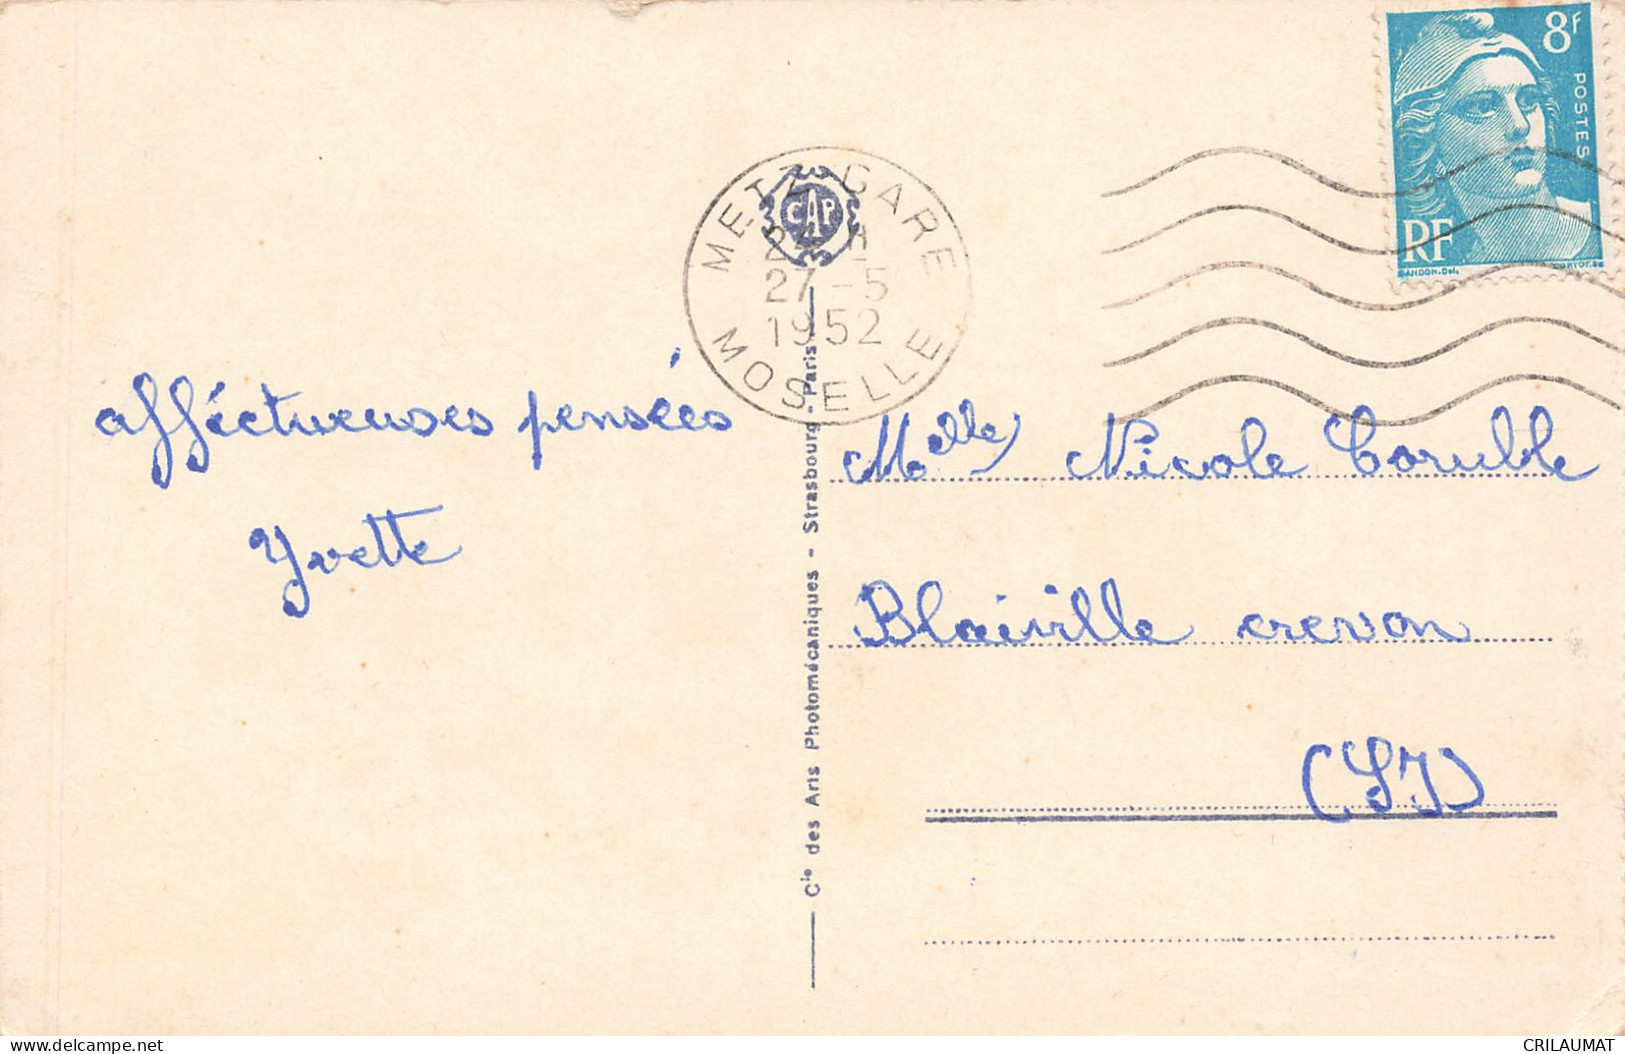 8F
POSTES
RF
GANDON.Del.
CORTOT.Sc
METZ GARE
CAP
24 H
27 -5
1952
MOSELLE
afféctueuses pensées
Yvette
Melle Nicole
Blaiville crevon
(SI)
Cie des Arts Photomécaniques - Strasbourg - Paris
delcampe.net
CRILAUMAT